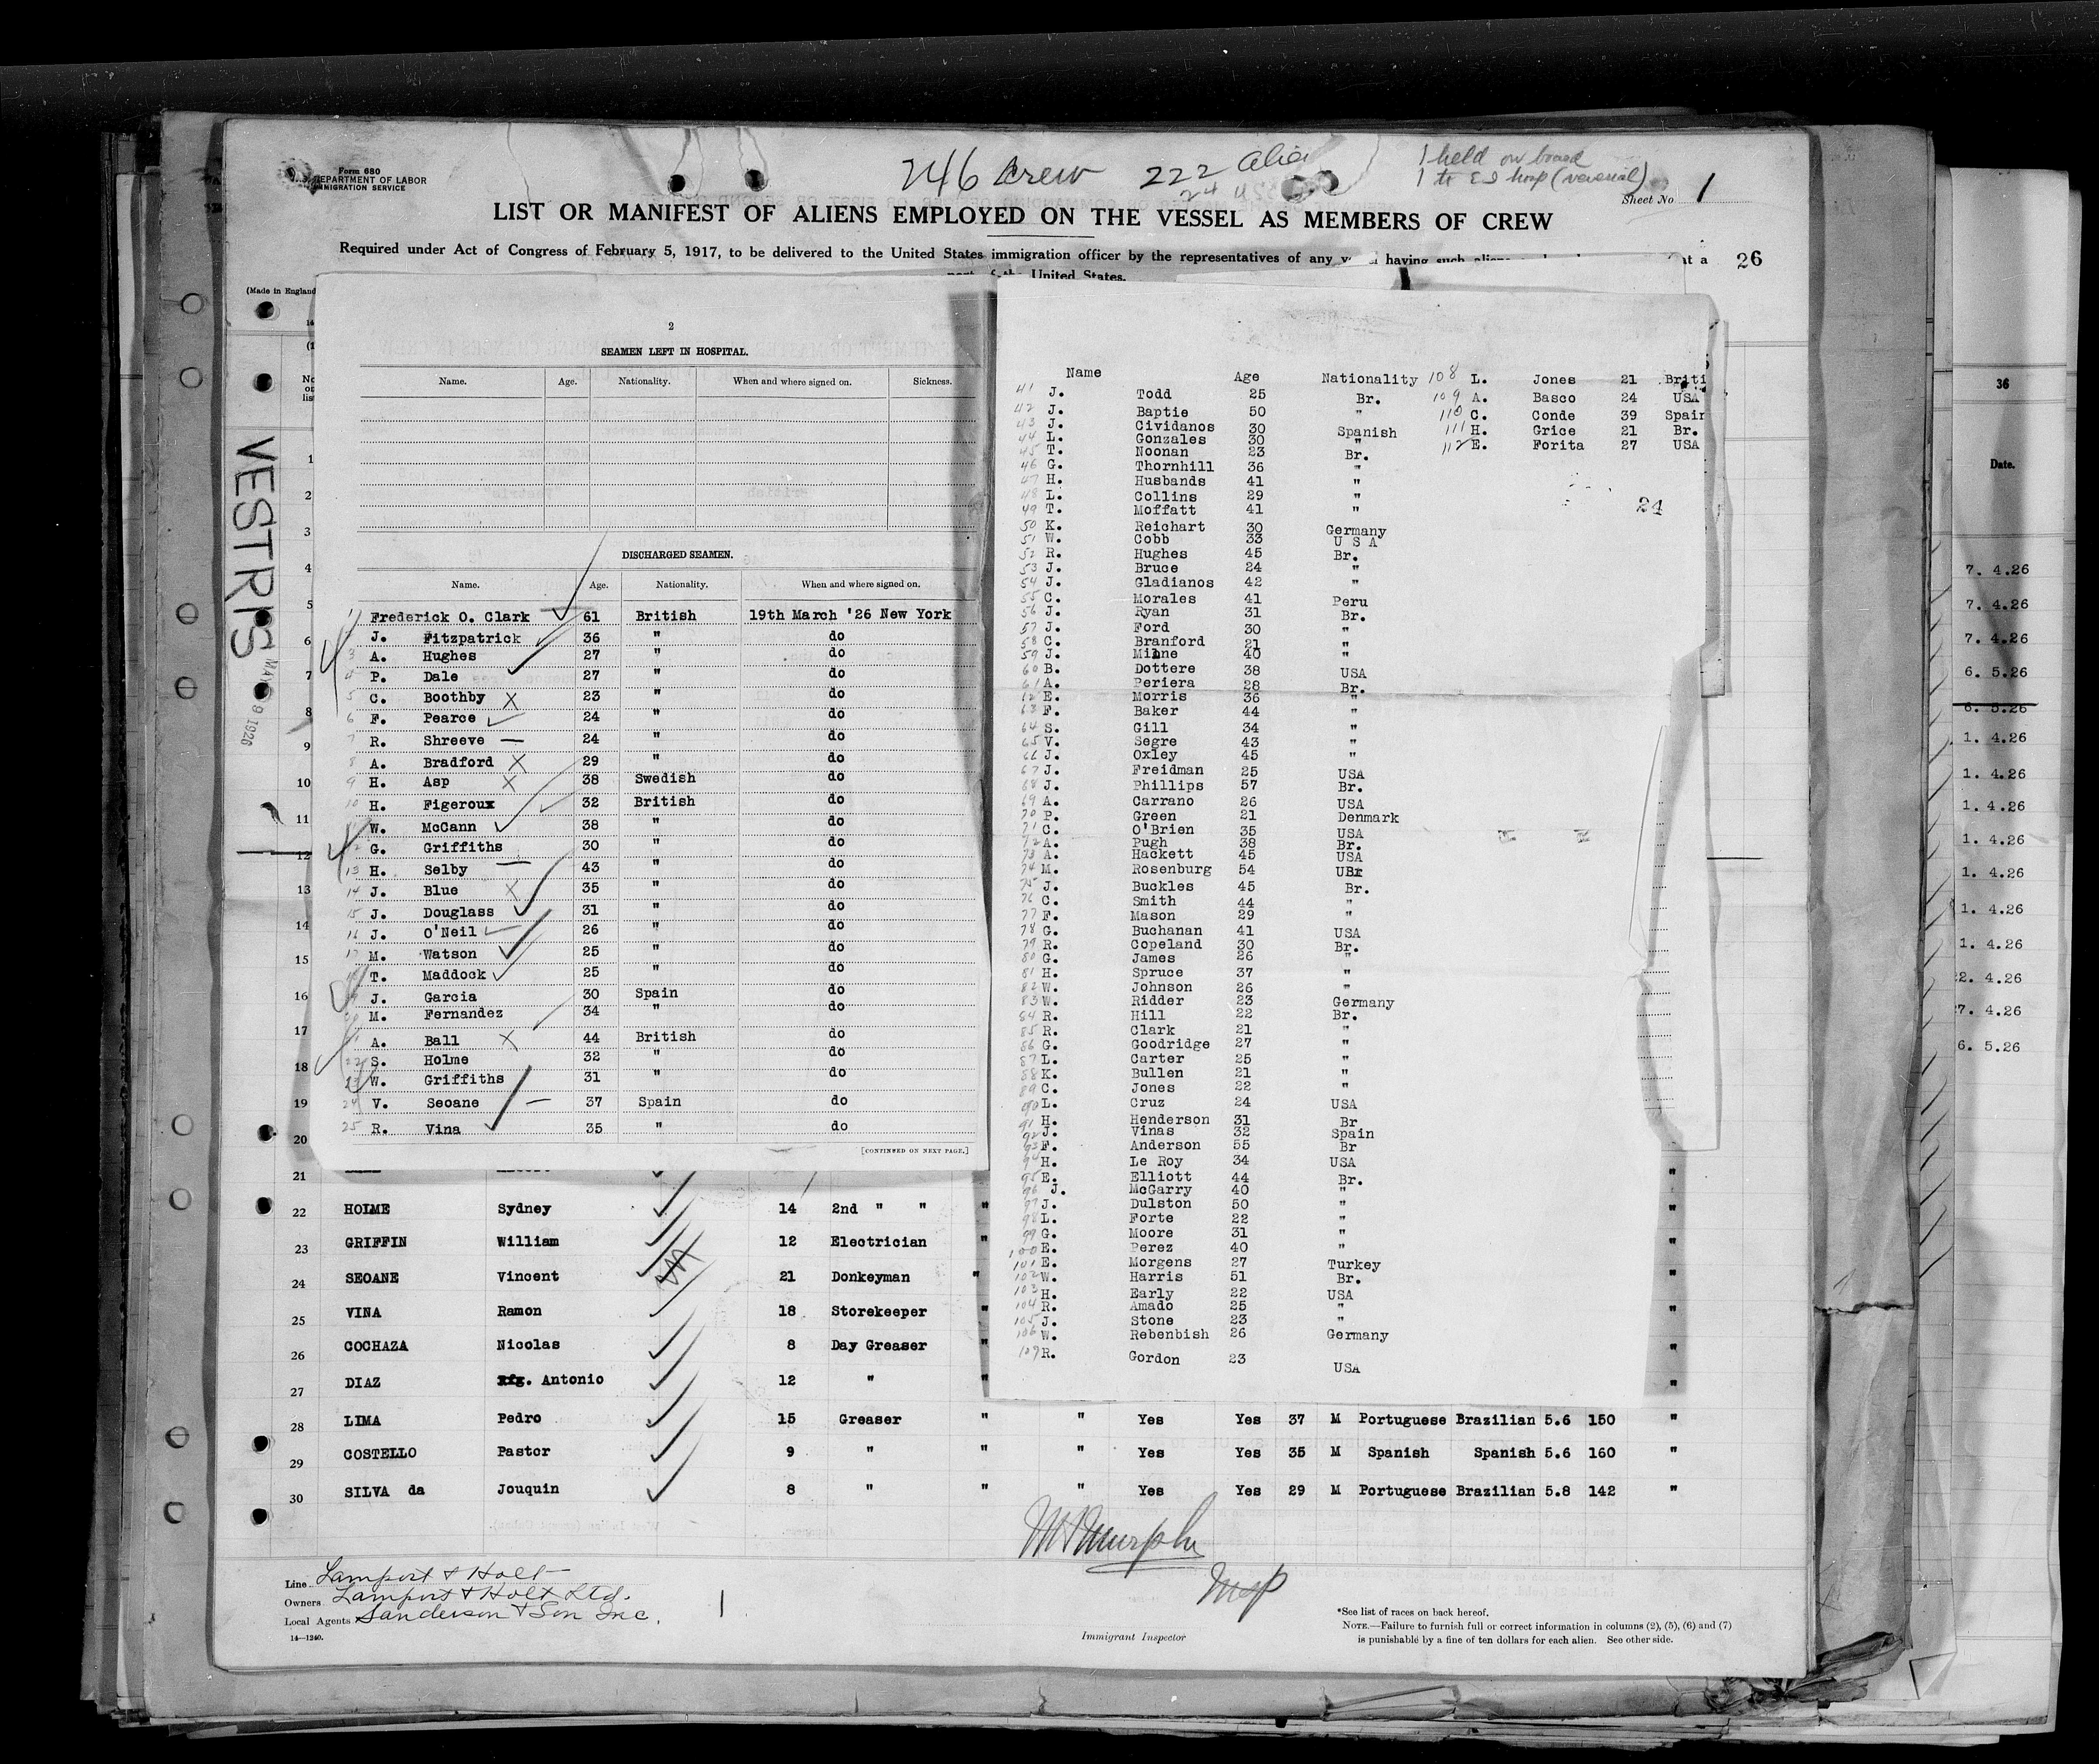 Form 680
DEPARTMENT OF LABOR
IMMIGRATION SERVICE
246 Crew 222 alien
1 held on board
1 to E I hosp (venereal)
Sheet No 1
LIST OR MANIFEST OF ALIENS EMPLOYED ON THE VESSEL AS MEMBERS OF CREW
Required under Act of Congress of February 5, 1917, to be delivered to the United States immigration officer by the representatives of any having such
United States.
at a 26
(Made in England
VESTRIS
9 1926
2
SEAMEN LEFT IN HOSPITAL.
Name. Age. Nationality. When and where signed on. Sickness.
DISCHARGED SEAMEN.
Name. Age. Nationality. When and where signed on.
1 Frederick O. Clark 61 British 19th March '26 New York
J. Fitzpatrick 36 " do
3 A. Hughes 27 " do
4 P. Dale 27 " do
5 C. Boothby X 23 " do
6 F. Pearce 24 " do
7 R. Shreeve — 24 " do
8 A. Bradford X 29 " do
9 H. Asp X 38 Swedish do
10 H. Figeroux 32 British do
W. McCann 38 " do
12 G. Griffiths 30 " do
13 H. Selby — 43 " do
14 J. Blue X 35 " do
15 J. Douglass 31 " do
16 J. O'Neil 26 " do
17 M. Watson 25 " do
T. Maddock 25 " do
J. Garcia 30 Spain do
M. Fernandez 34 " do
A. Ball X 44 British do
22 S. Holme 32 " do
23 W. Griffiths 31 " do
24 V. Seoane — 37 Spain do
25 R. Vina 35 " do
[CONTINUED ON NEXT PAGE.]
Name Age Nationality
41 J. Todd 25 Br.
42 J. Baptie 50 "
43 J. Cividanos 30 Spanish
44 L. Gonzales 30 "
45 T. Noonan 23 Br.
46 G. Thornhill 36 "
47 H. Husbands 41 "
48 L. Collins 29 "
49 T. Moffatt 41 "
50 K. Reichart 30 Germany
51 W. Cobb 33 U S A
52 R. Hughes 45 Br.
53 J. Bruce 24 "
54 J. Gladianos 42 "
55 C. Morales 41 Peru
56 J. Ryan 31 Br.
57 J. Ford 30 "
58 C. Branford 21 "
59 J. Milne 40 "
60 B. Dottere 38 USA
61 A. Periera 28 Br.
62 E. Morris 36 "
63 F. Baker 44 "
64 S. Gill 34 "
65 V. Segre 43 "
66 J. Oxley 45 "
67 J. Freidman 25 USA
68 J. Phillips 57 Br.
69 A. Carrano 26 USA
70 P. Green 21 Denmark
71 C. O'Brien 35 USA
72 A. Pugh 38 Br.
73 A. Hackett 45 USA
74 M. Rosenburg 54
75 J. Buckles 45 Br.
76 C. Smith 44 "
77 F. Mason 29 "
78 G. Buchanan 41 USA
79 R. Copeland 30 Br.
80 G. James 26 "
81 H. Spruce 37 "
82 W. Johnson 26 "
83 W. Ridder 23 Germany
84 R. Hill 22 Br.
85 R. Clark 21 "
86 G. Goodridge 27 "
87 L. Carter 25 "
88 K. Bullen 21 "
89 C. Jones 22 "
90 L. Cruz 24 USA
91 H. Henderson 31 Br
92 J. Vinas 32 Spain
93 F. Anderson 55 Br
94 H. Le Roy 34 USA
95 E. Elliott 44 Br.
96 J. McGarry 40 "
97 J. Dulston 50 "
98 L. Forte 22 "
99 G. Moore 31 "
100 E. Perez 40 "
101 E. Morgens 27 Turkey
102 W. Harris 51 Br.
103 H. Early 22 USA
104 R. Amado 25 "
105 J. Stone 23 "
106 W. Rebenbish 26 Germany
107 R. Gordon 23 USA
108 L. Jones 21 Briti
109 A. Basco 24 USA
110 C. Conde 39 Spain
111 H. Grice 21 Br.
112 E. Forita 27 USA
24
1
2
3
4
5
6
7
8
9
10
11
12
13
14
15
16
17
18
19
20
21
22 HOLME Sydney 14 2nd " " "
23 GRIFFIN William 12 Electrician "
24 SEOANE Vincent 21 Donkeyman "
25 VINA Ramon 18 Storekeeper "
26 COCHAZA Nicolas 8 Day Greaser "
27 DIAZ Antonio 12 "
28 LIMA Pedro 15 Greaser " " Yes Yes 37 M Portuguese Brazilian 5.6 150 "
29 COSTELLO Pastor 9 " " " Yes Yes 35 M Spanish Spanish 5.6 160 "
30 SILVA da Jouquin 8 " " " Yes Yes 29 M Portuguese Brazilian 5.8 142 "
Line Lamport & Holt
Owners Lamport & Holt Ltd.
Local Agents Sanderson & Son Inc.
14—1240.
1
Immigrant Inspector
*See list of races on back hereof.
NOTE.—Failure to furnish full or correct information in columns (2), (5), (6) and (7)
is punishable by a fine of ten dollars for each alien. See other side.
36
Date.
7. 4.26
7. 4.26
7. 4.26
6. 5.26
6. 5.26
1. 4.26
1. 4.26
1. 4.26
1. 4.26
1. 4.26
1. 4.26
1. 4.26
2. 4.26
7. 4.26
6. 5.26